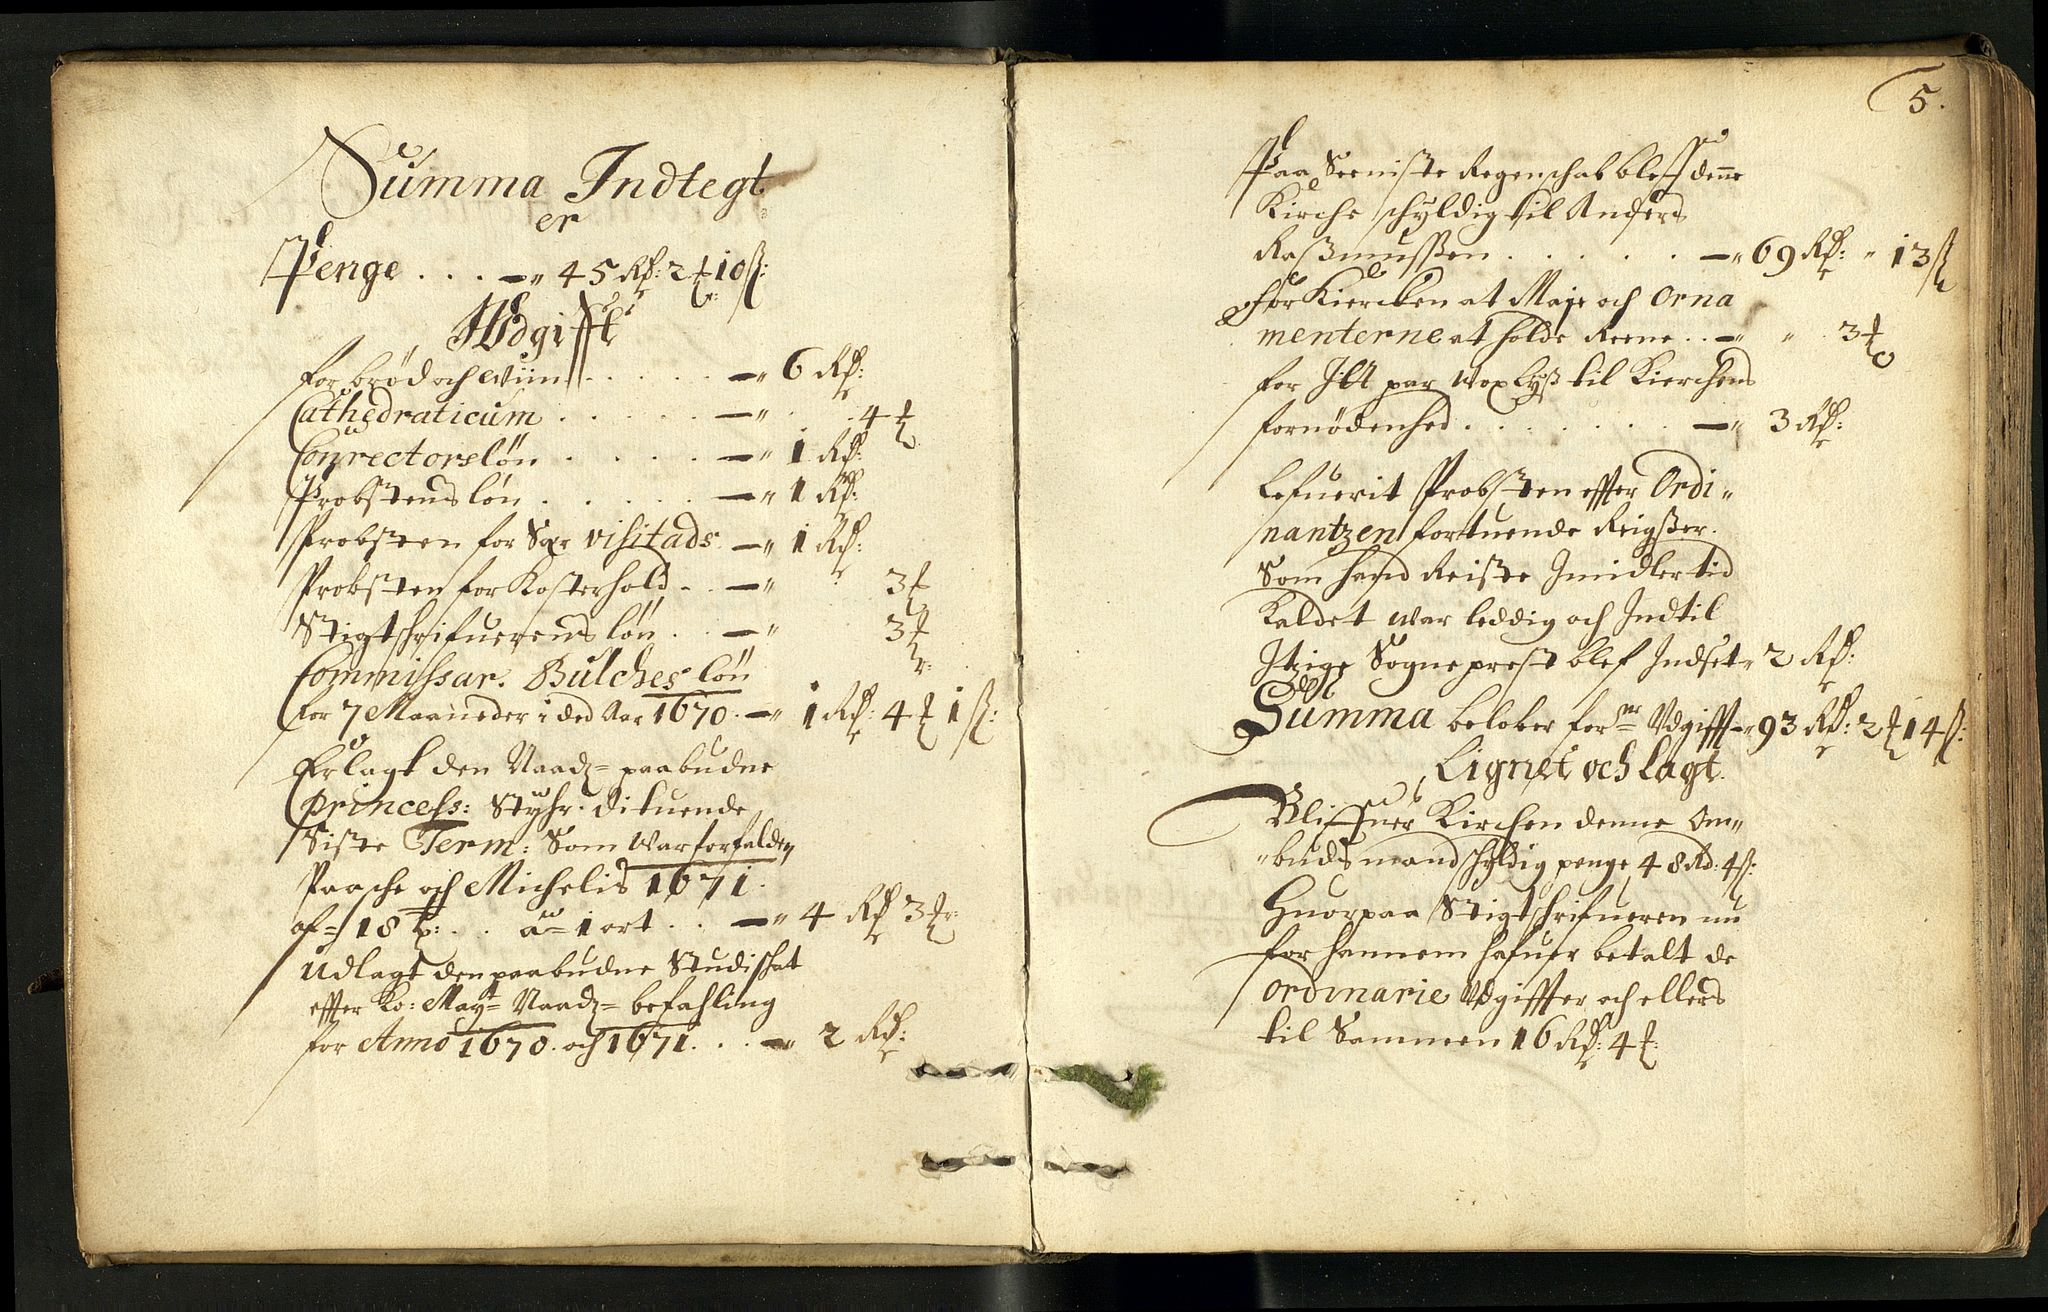 Summa Indtegt
er
Penge . . . — 45 Rd: 2 ₥r: 10 ß:
Udgifft
for brød och wiin . . . . . — 6 Rd:
Cathedraticum . . . . . — 4 ₥r
Conrectorsløn . . . . . — 1 Rd:
Probstens løn . . . . . — 1 Rd:
Probsten for visitads — 1 Rd:
Probsten for Kosterhold . . — 3 ₥r
Stigtschrifuerens løn . . — 3 ₥r:
Commissar. Bulches løn
for 7 Maaneder i ded Aar 1670. — 1 Rd: 4 ₥r 1 ß:
Erlagt den Naadz= paabudne
Princess: Styhr. Dituende
Siste Term: Som war forfalden
Paasche och Michelis 1671.
af 18 . . a 1 ort . . — 4 Rd 3 ₥r:
Udlagt den paabudne Studischat
effter Ko: Mayt= Naadz= befahling
for Anno 1670. och 1671. . . — 2 Rd:
5.
Paa Seeniste Regenschab blef denne
Kirche schyldig til Anders
Rasmussen . . . . . — 69 Rd: 13 ß
for Kiercken at Maje och Orna
menterne at holde Reene . . — 3 ₥r
for par Wox Lyß til Kierchens
fornødenhed . . . . . . — 3 Rd:
Lefuerit Probsten effter Ordi=
nantzen fortuende Reigßer.
Som hand Reiste Imidlertid
Kaldet war leddig och Indtil
Itzige Sogneprest blef Indset 2 Rd:
Summa beløber for:ne Udgifft — 93 Rd: 2 ₥r 14 ß:
Lignet och lagt.
Blifuer Kirchen denne Om=
=budsmand schyldig penge 48 Rd: 4 ß:
Huorpaa Stigtschrifueren nu
for hannem hafuer betalt de
Ordinarie Udgiffter och ellers
til Sammen 16 Rd: 4 ₥r: